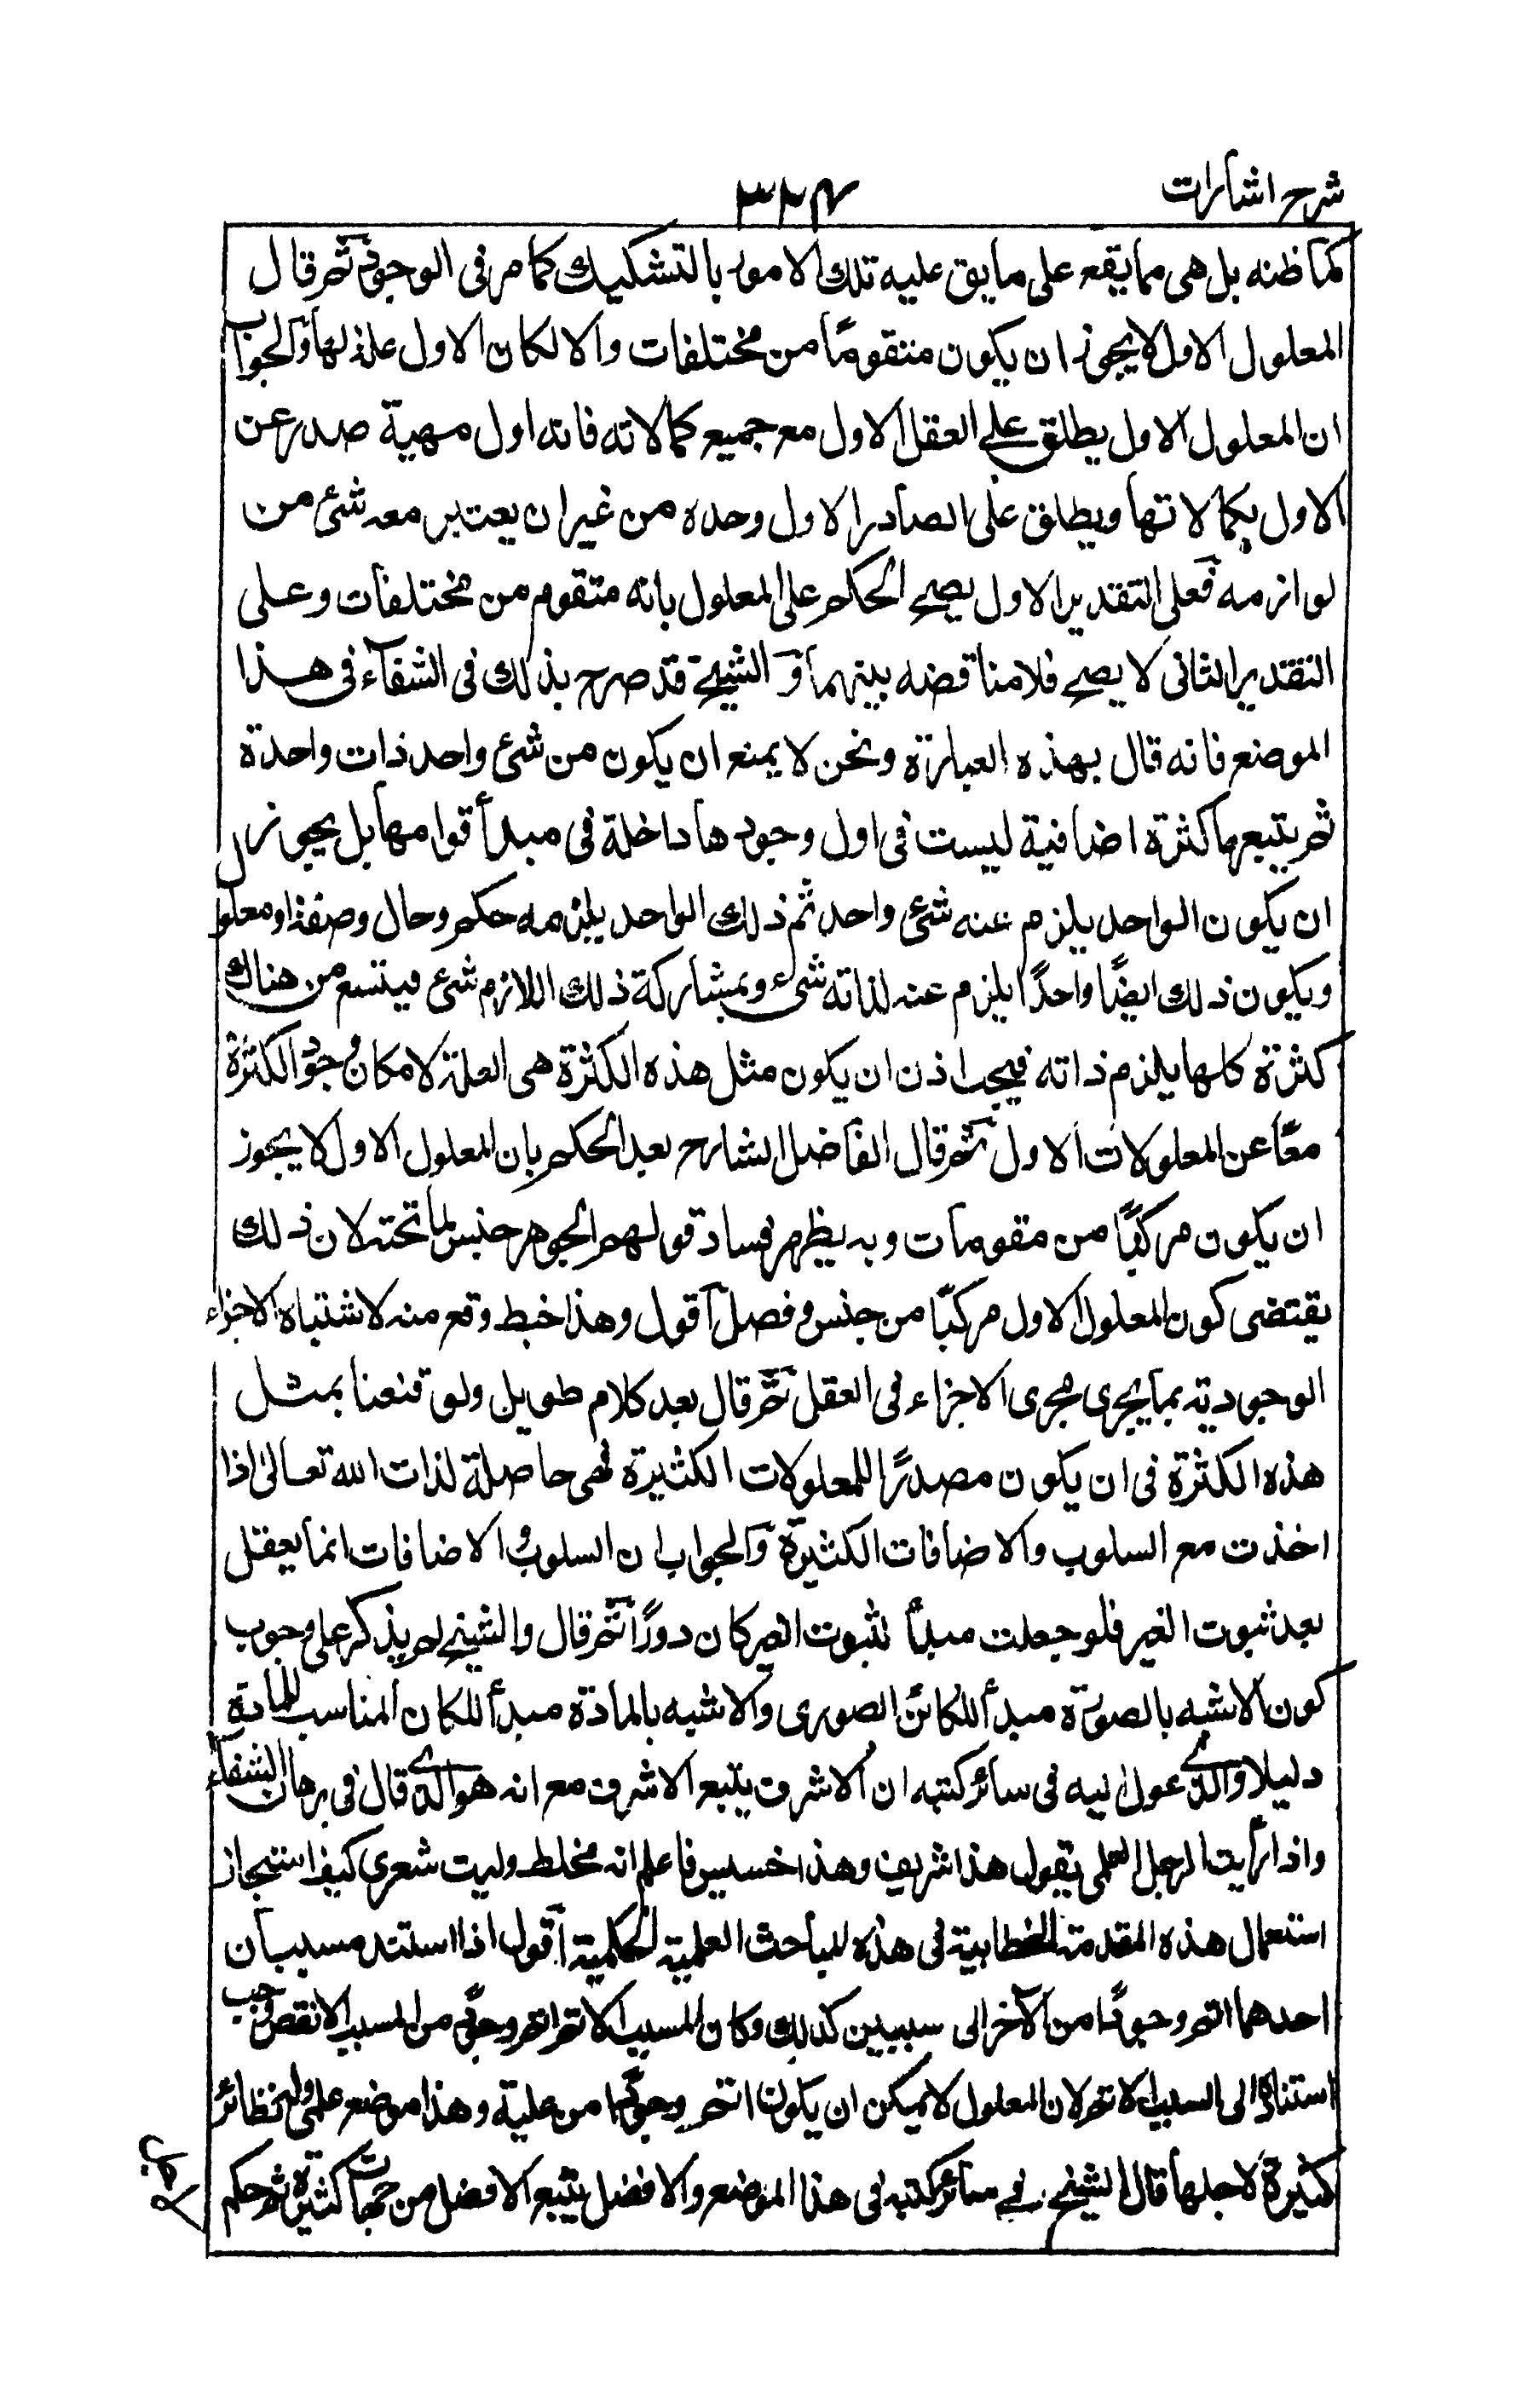 شرح اشارات
٣٢٤
كما ظنه بل هى مما يقع على ما يق عليه تلك الامور بالتشكيك كما مر فى الوجود ثم قال
المعلول الاول لا يجوز ان يكون متقومًا من مختلفات والا لكان الاول علة لها والجواب
ان المعلول الاول يطلق على العقل الاول مع جميع كمالاته فانه اول مهية صدر عن
الاول بكمالاتها ويطلق على الصادر الاول وحده من غير ان يعتبر معه شئ من
لوازمه فعلى التقدير الاول يصح الحكم على المعلول بانه متقوم من مختلفات وعلى
التقدير الثانى لا يصح فلا مناقضه بينهما و الشيخ قد صرح بذلك فى الشفاء فى هذا
الموضع فانه قال بهذه العبارة ونحن لا يمنع ان يكون من شئ واحد ذات واحدة
ثم يتبعها كثرة اضافية ليست فى اول وجودها داخلة فى مبدأ قوامها بل يجوز
ان يكون الواحد يلزم عنه شئ واحد ثم ذلك الواحد يلزمه حكم وحال وصفة او معلول
ويكون ذلك ايضًا واحدًا يلزم عنه لذاته شئ وبمشاركة ذلك اللازم شئ فيتسع من هناك
كثرة كلها يلزم ذاته فيجب اذن ان يكون مثل هذه الكثرة هى العلة لامكان وجود الكثرة
معًا عن المعلولات الاول ثم قال الفاضل الشارح بعد الحكم بان المعلول الاول لا يجوز
ان يكون مركبًا من مقومات وبه يظهر فساد قولهم الجوهر جنس لما تحته لان ذلك
يقتضى كون المعلول الاول مركبًا من جنس وفصل اقول وهذا خبط وقع منه لاشتباه الاجزاء
الوجودية بما يجرى مجرى الاجزاء فى العقل ثم قال بعد كلام طويل ولو قنعنا بمثل
هذه الكثرة فى ان يكون مصدرًا للمعلولات الكثيرة فهى حاصلة لذات الله تعالى اذا
اخذت مع السلوب والاضافات الكثيرة والجواب ان السلوب و الاضافات انما يعقل
بعد ثبوت الغير فلو جعلت مبدأ لثبوت الغير كان دورًا ثم قال والشيخ لم يذكر على وجوب
كون الاشبه بالصورة مبدأ للكائن الصورى والاشبه بالمادة مبدأ للكان المناسب للمادة
دليلا والذى عول اليه فى سائر كتبه ان الاشرف يتبع الاشرف مع انه هو الذى قال فى برهان الشفاء
واذا رأيت الرجل العلمى يقول هذا شريف وهذا خسيس فاعلم انه مخلط وليت شعرى كيف استجاز
استعمال هذه المقدمة الخطابية فى هذه المباحث العلمية الحكمية اقول اذا استند مسببان
احدهما اتم وجودًا من الآخر الى سببين كذلك وكان المسبب الاتم اتم وجودًا من المسبب الانقص وجب
استناده الى السبب الاتم لان المعلول لا يمكن ان يكون اتم وجودًا من علية وهذا موضع علمى وله نظائر
كثيرة لاجلها قال الشيخ فى سائر كتبه فى هذا الموضع والافضل يتبع الافضل من جهات كثيرة ثم حكم